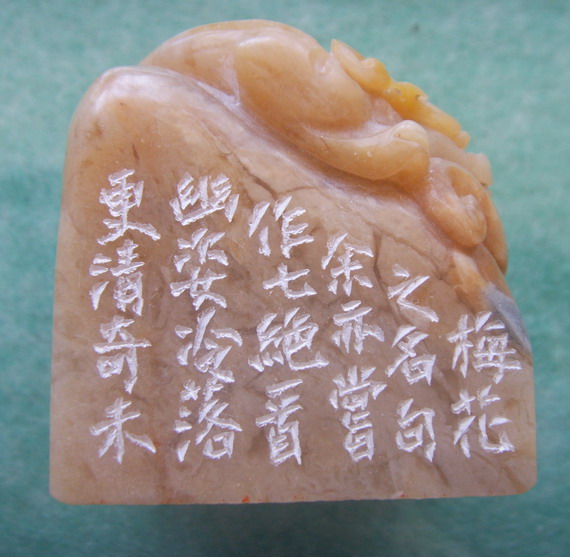 梅花
之名句
余亦嘗
作七絕一首
幽姿冷落
更清奇未